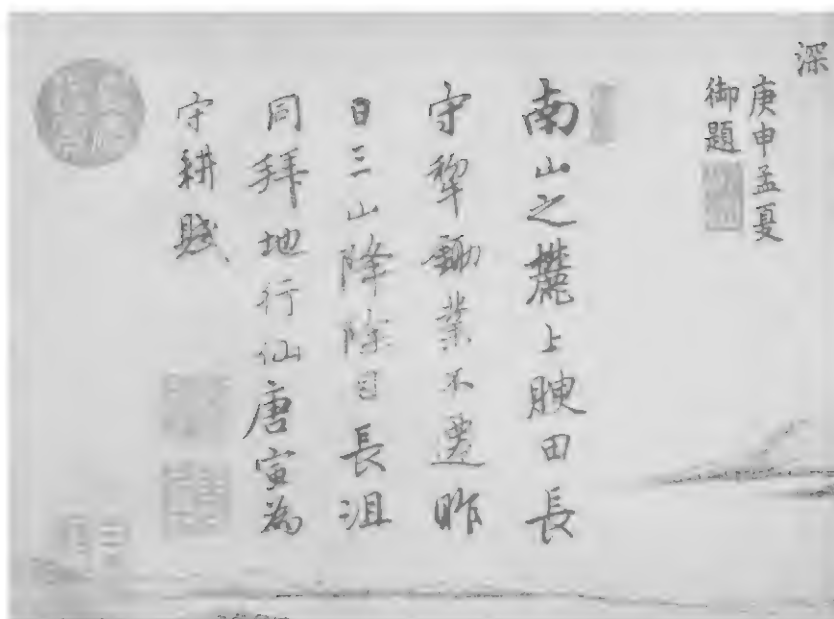 深
庚申孟夏
御題
南山之麓上腴田長
守犂鋤業不遷昨
日三山降除目長沮
同拜地行仙唐寅為
守耕賦